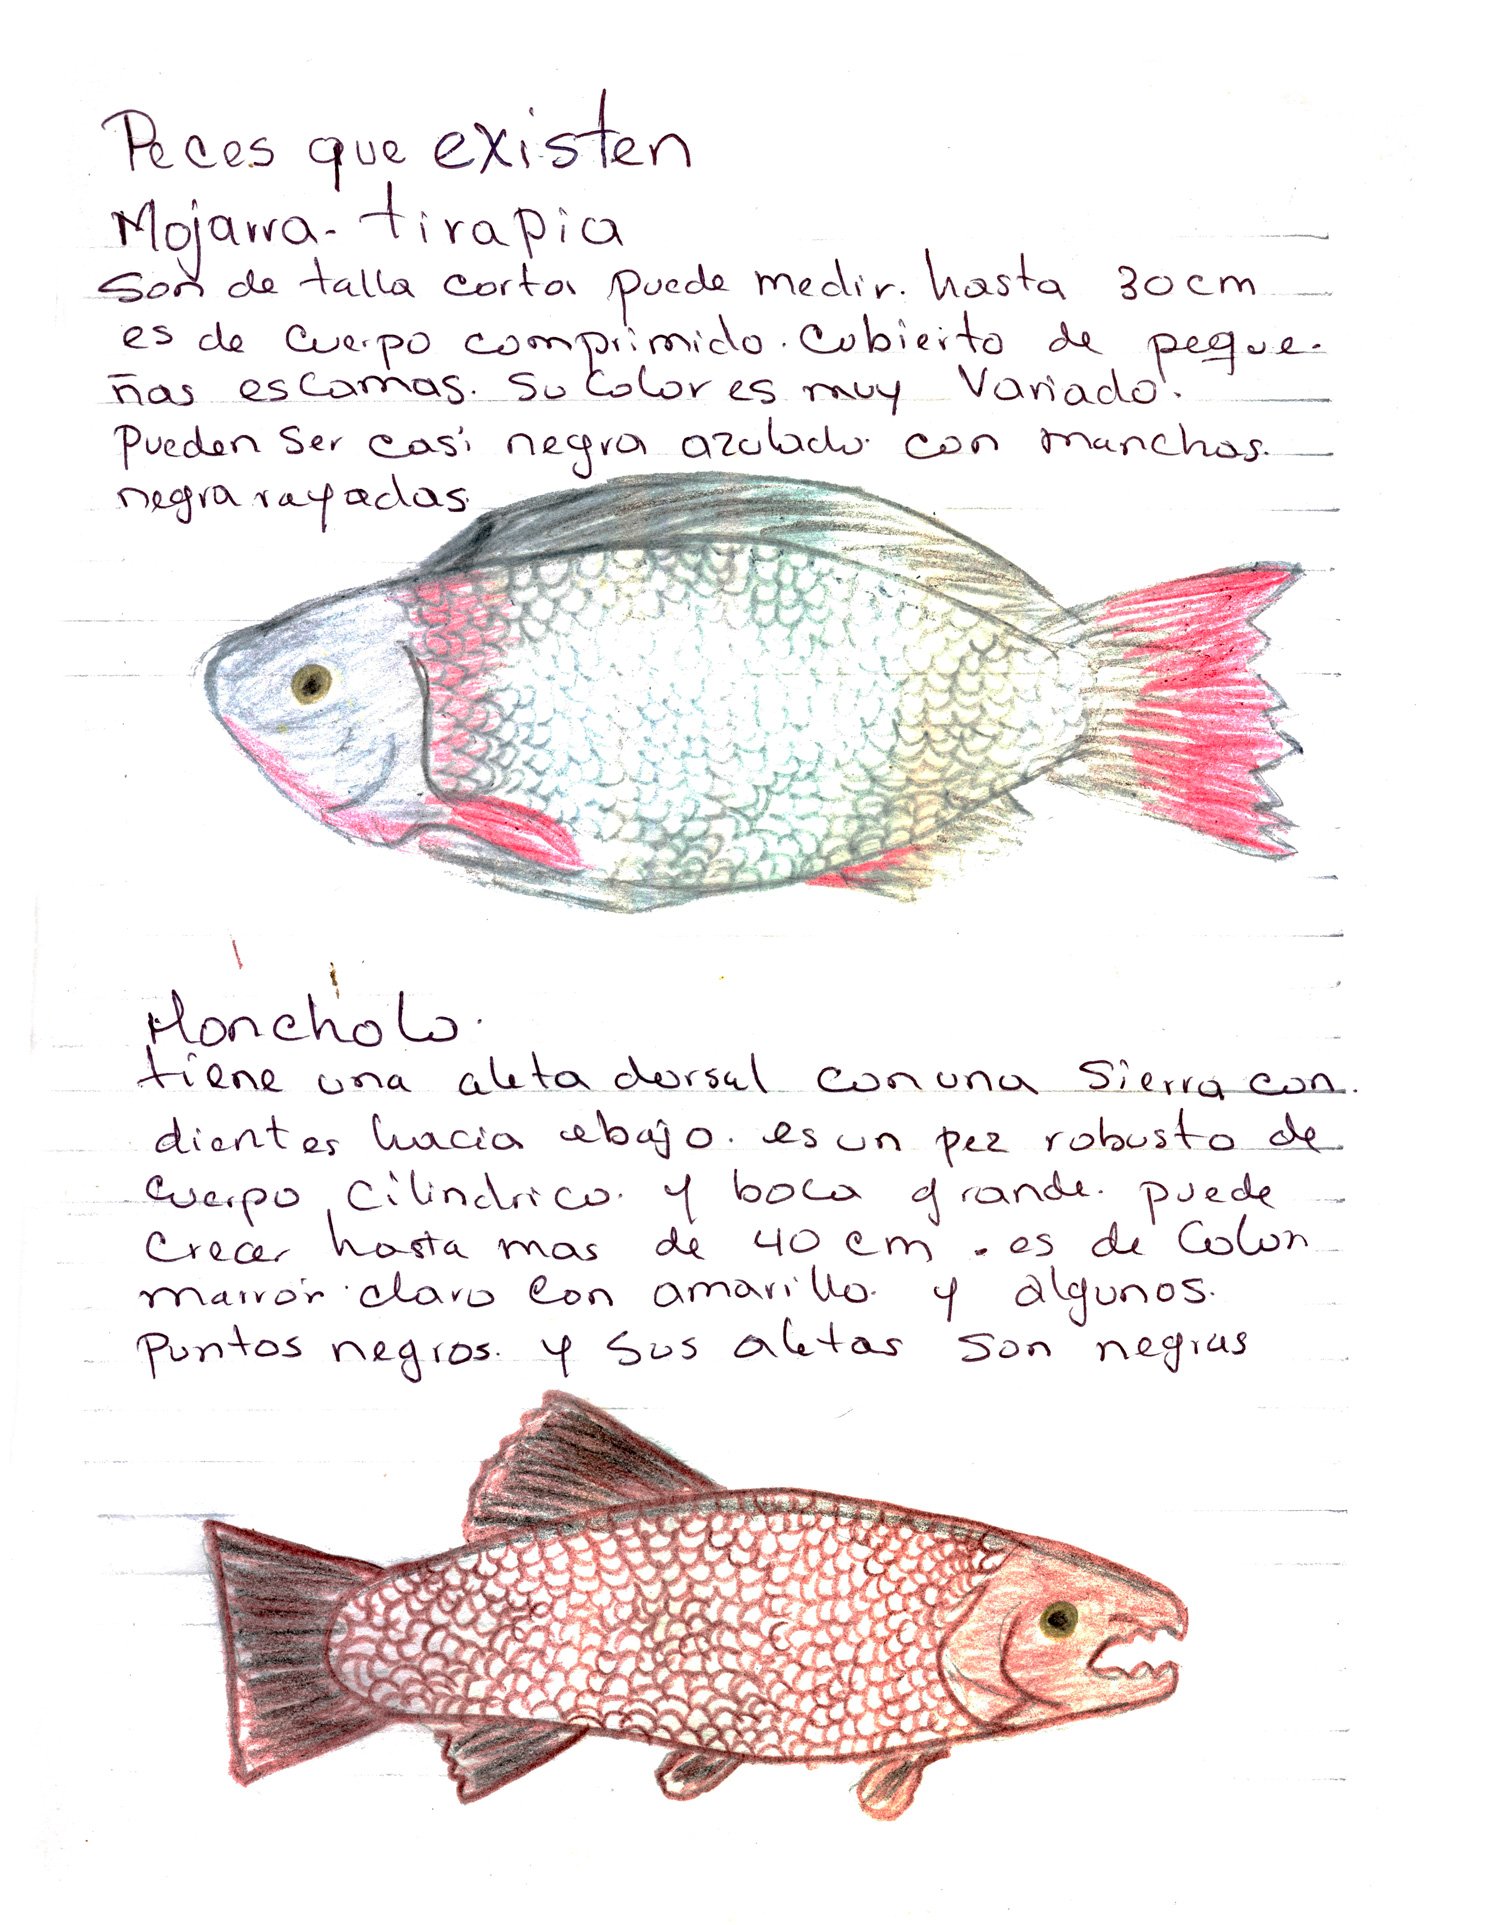 Peces que existen
Mojarra-tirapia
Son de talla corta puede medir. hasta 30cm
es de cuerpo comprimido. Cubierto de peque-
ñas escamas. Su Color es muy Variado.
Pueden Ser casi negra azulado. con manchas.
negra rayadas.
Moncholo.
tiene una aleta dorsal con una Sierra con.
dientes hacia abajo. es un pez robusto de
cuerpo cilindrico. y boca grande. puede
crecer hasta mas de 40 cm. es de Colon
marrón claro con amarillo. y algunos.
Puntos negros. y sus aletas son negras